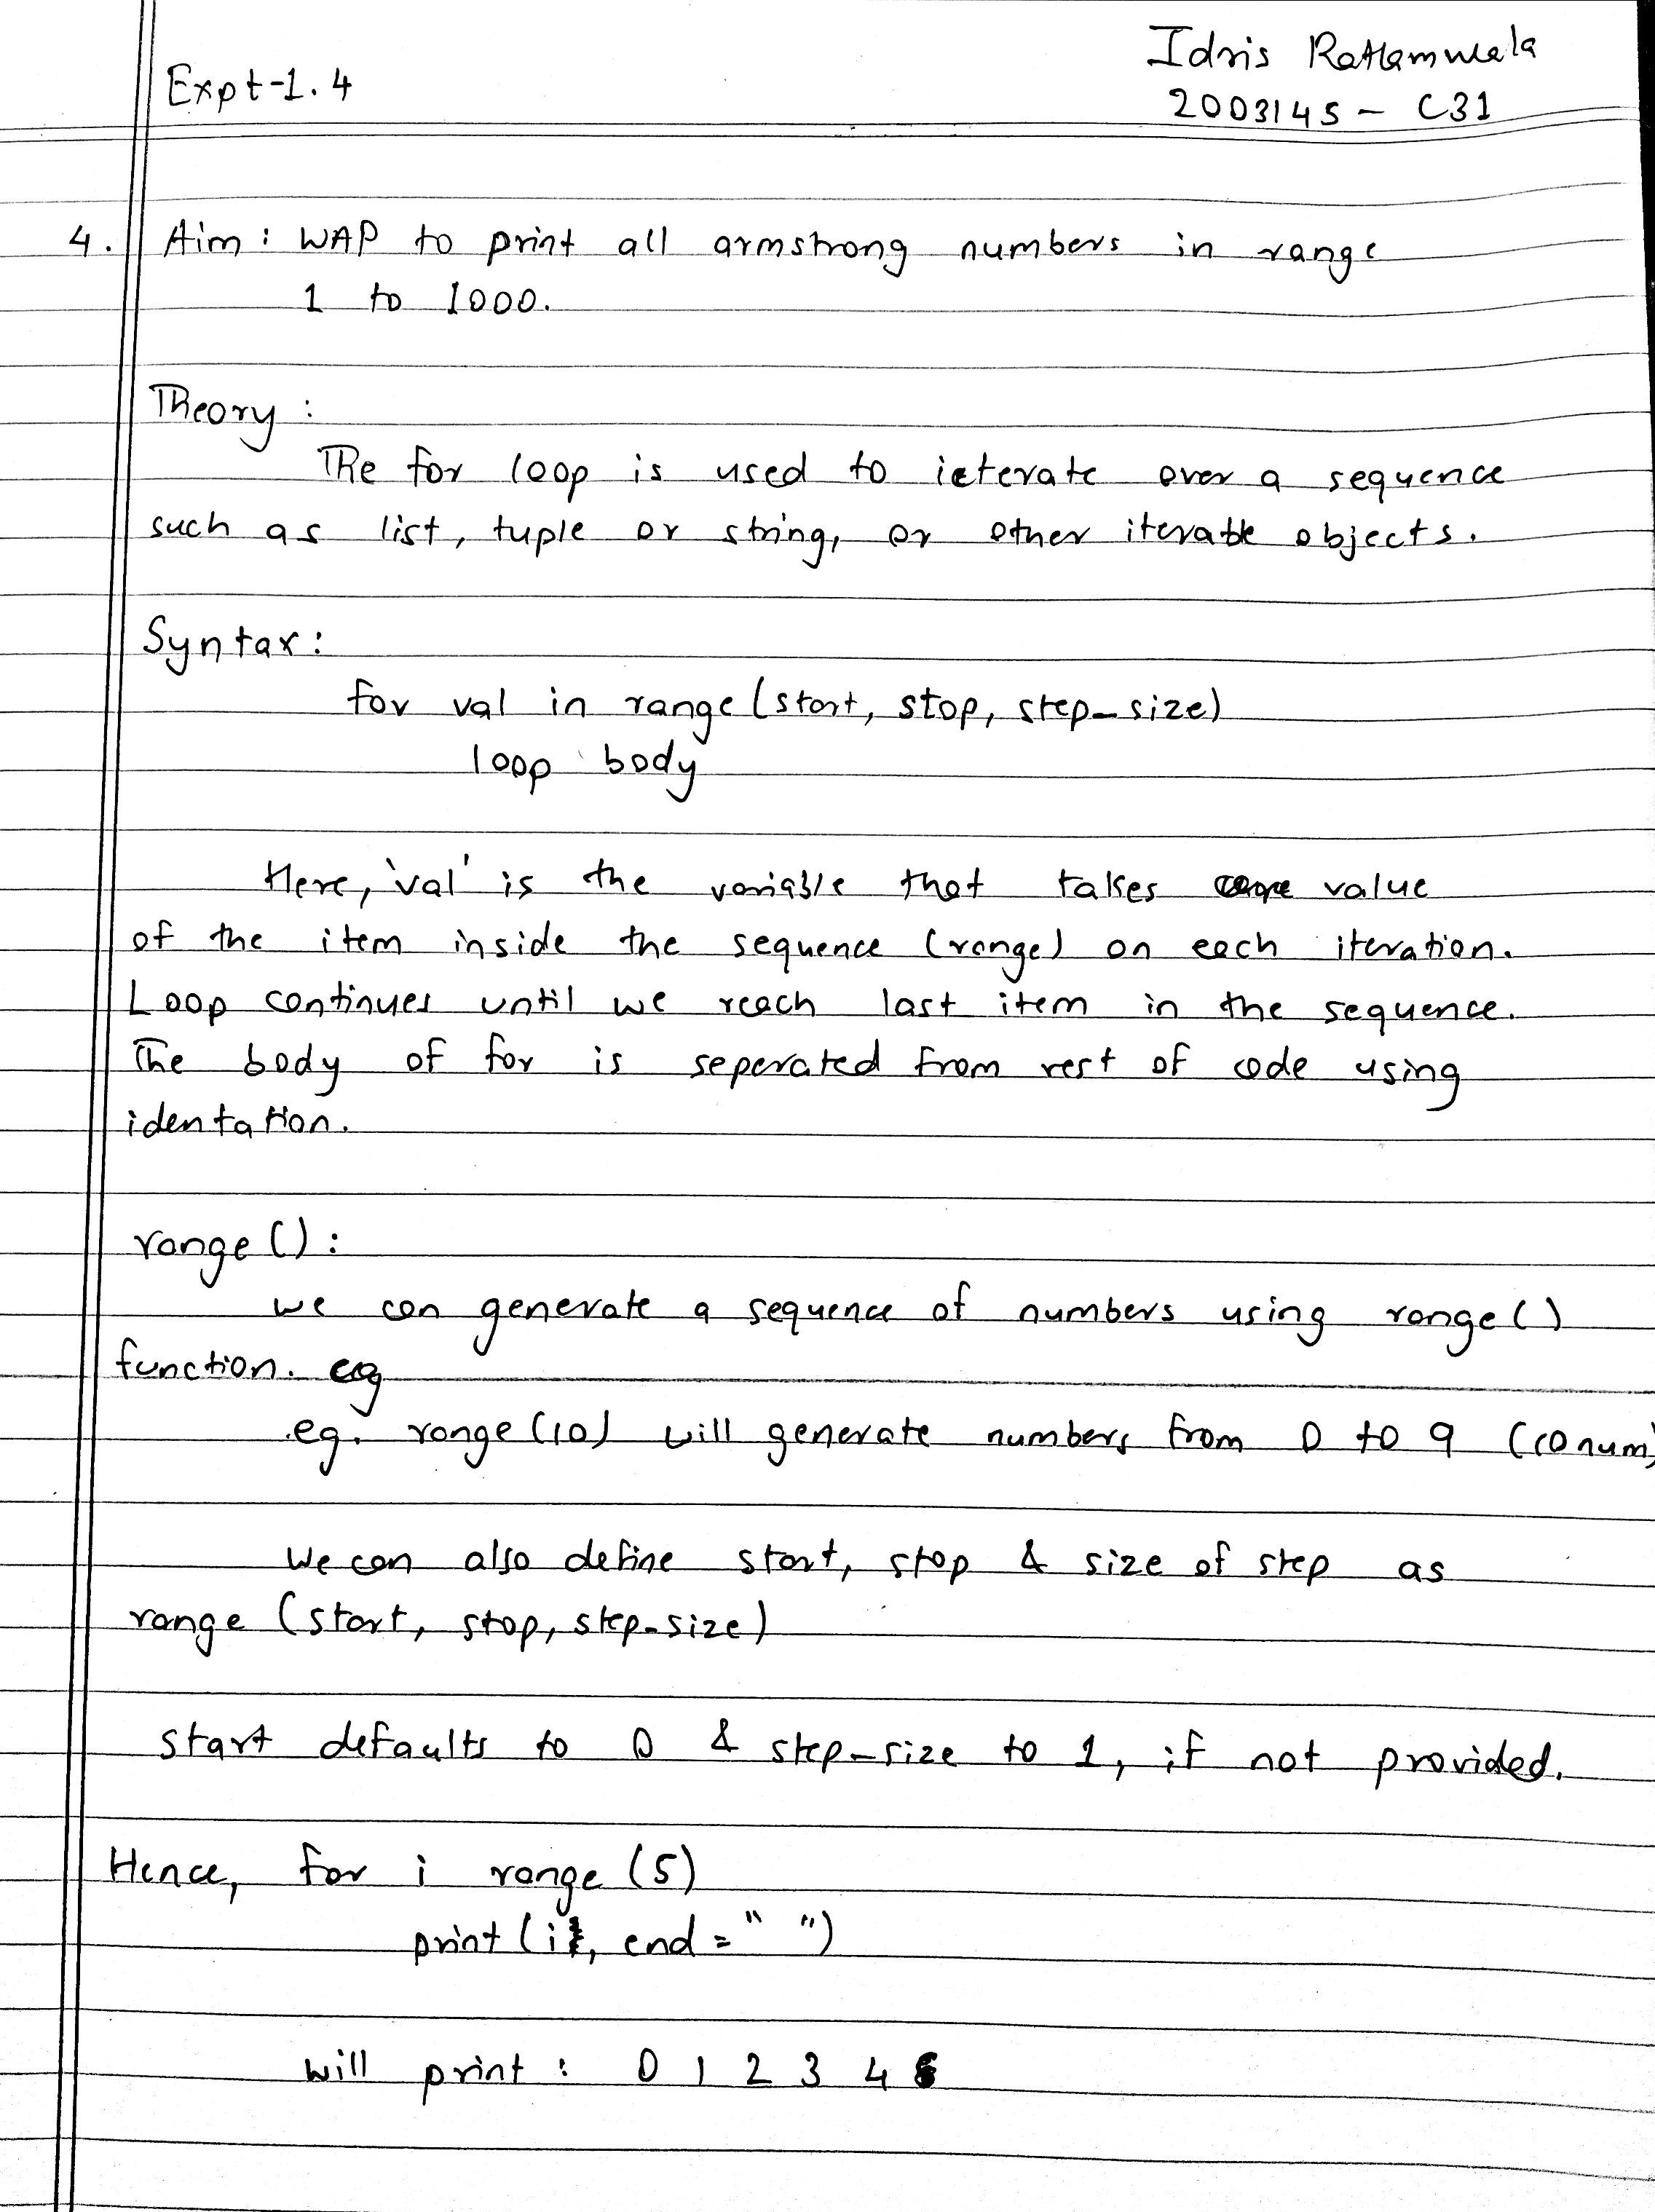 Idris Ratlamwala
Expt-1.4
2003145 - C31
4. Aim : WAP to print all armstrong numbers in range
1 to 1000.
Theory :
The for loop is used to ieterate over a sequence
such as list, tuple or string, or other iterable objects.
Syntax :
for val in range (start, stop, step_size)
loop body
Here, 'val' is the variable that takes value
of the item inside the sequence (range) on each iteration.
Loop continues until we reach last item in the sequence.
The body of for is seperated from rest of code using
identation.
range () :
we can generate a sequence of numbers using range ()
function. eg
eg. range (10) will generate numbers from 0 to 9 (10 num)
We can also define start, stop & size of step as
range (start, stop, step-size)
start defaults to 0 & step-size to 1, if not provided.
Hence, for i range (5)
print (i, end = " ")
will print : 0 1 2 3 4